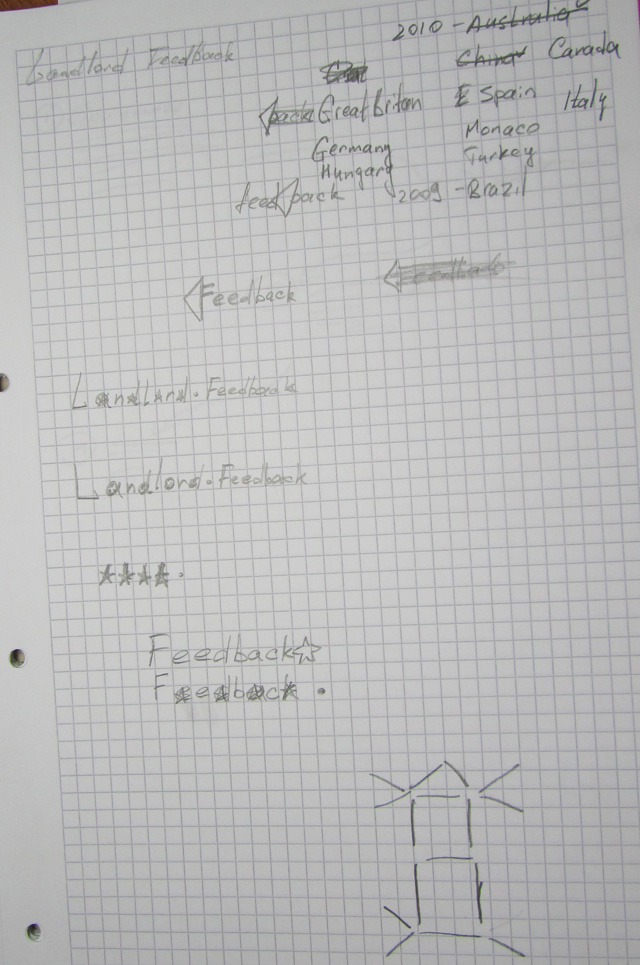 2010 - Australia
Landlord Feedback
China Canada
back Great Briton E Spain Italy
Monaco
Germany Turkey
Hungary
feedback 2009 - Brazil
Feedback
Feedback
Landlord.Feedback
Landlord.Feedback
★★★★.
Feedback☆
Feedback.